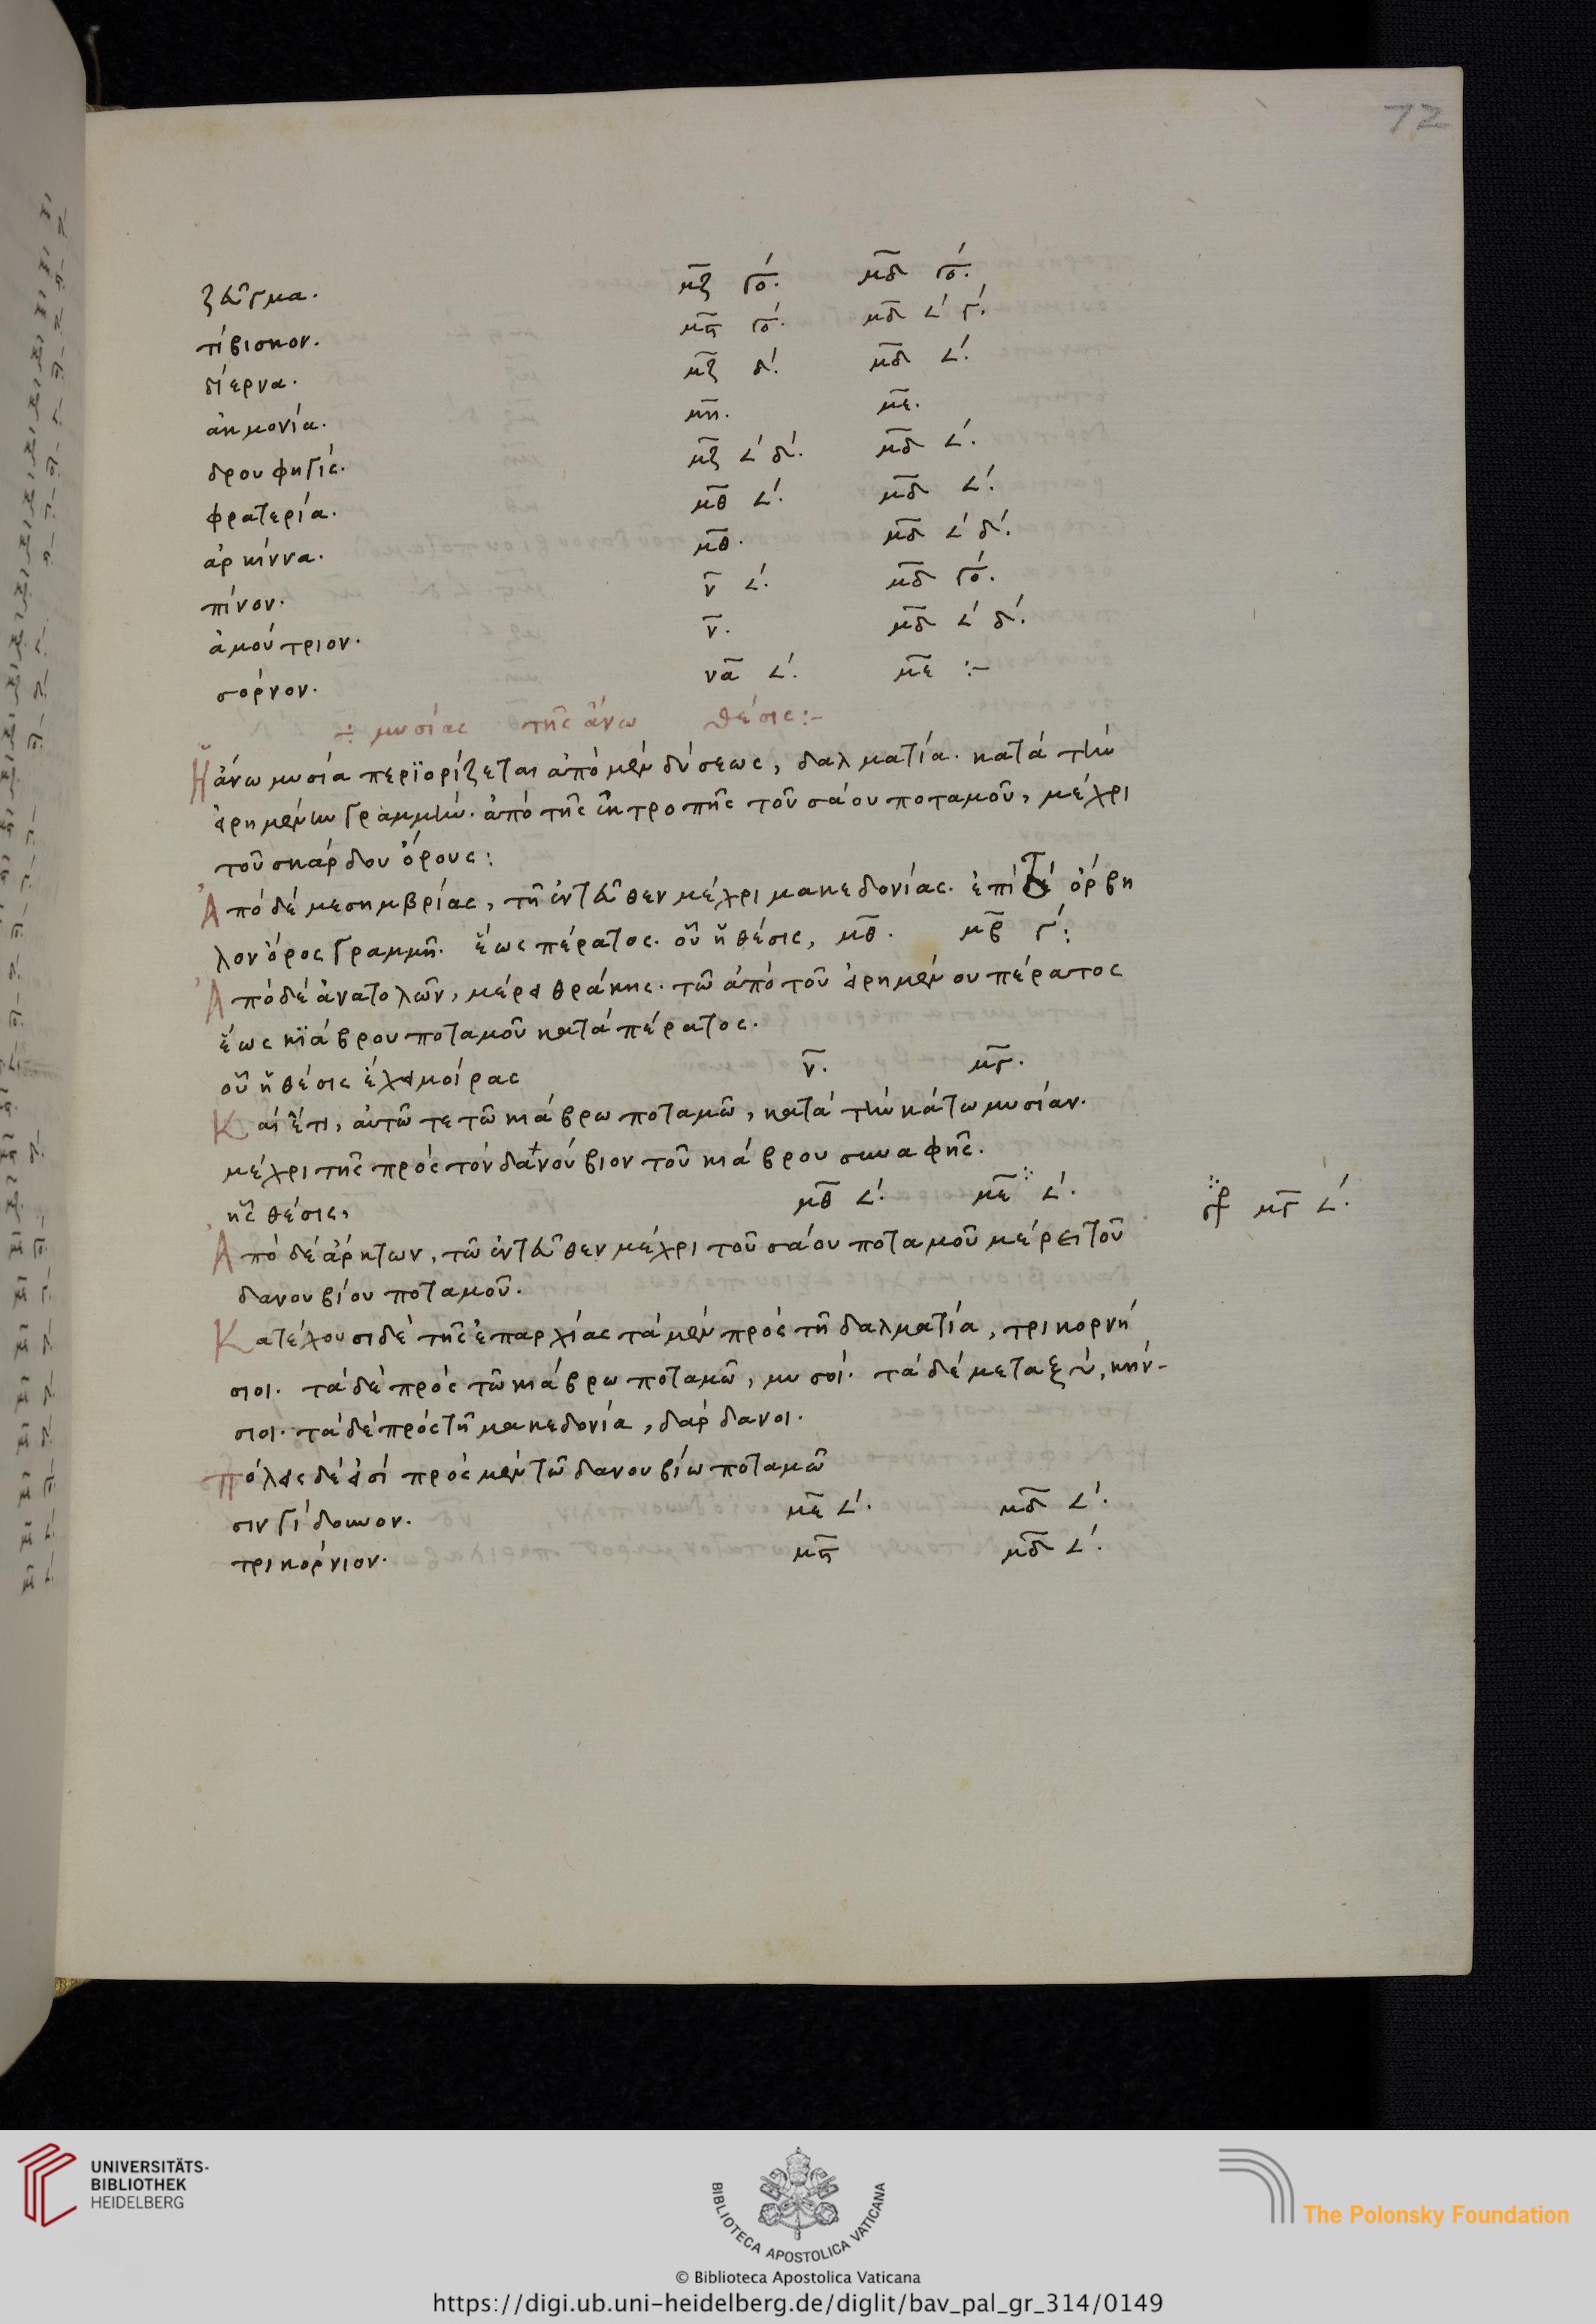 72
ζεῦγμα. μ̅ζ̅ γο´. μ̅δ̅ γο´.
τίβισκον. μ̅ϛ̅ γο´. μ̅δ̅ ∠´ γ´.
δίερνα. μ̅ζ̅ δ´. μ̅δ̅ ∠´.
ἀκμονία. μ̅η̅. μ̅ε̅.
δρουφηγίς. μ̅ζ̅ ∠´ δ´. μ̅δ̅ ∠´.
φρατερία. μ̅θ̅ ∠´. μ̅δ̅ ∠´.
ἀρκίννα. μ̅θ̅. μ̅δ̅ ∠´ δ´.
πίνον. ν̅ ∠´. μ̅δ̅ γο´.
ἀμούτριον. ν̅. μ̅δ̅ ∠´ δ´.
σόρνον. ν̅α̅ ∠´. μ̅ε̅ :-
÷ μυσίας τῆς ἄνω θέσις:-
Ἡ ἄνω μυσία περϊορίζεται ἀπὸ μὲν δύσεως, δαλματία. κατὰ τὴν
εἰρημένην γραμμήν. ἀπὸ τῆς ἐκτροπῆς τοῦ σάου ποταμοῦ, μέχρι
τοῦ σκάρδου ὄρους:
Ἀπὸ δὲ μεσημβρίας, τῇ ἐντεῦθεν μέχρι μακεδονίας. ἐπὶ τὸ ὀρβη
λον ὄρος γραμμῇ. ἕως πέρατος. οὗ ἡ θέσις, μ̅θ̅. μ̅β̅ γ´:
Ἀπὸ δὲ ἀνατολῶν, μέρει θράκης. τῶ ἀπὸ τοῦ εἰρημένου πέρατος
ἕως κϊάβρου ποταμοῦ κατὰ πέρατος.
οὗ ἡ θέσις ἐχει μοίρας ν̅. μ̅γ̅.
Καὶ ἔτι, αὐτῶ τε τῶ κιάβρω ποταμῶ, κατὰ τὴν κάτω μυσίαν.
μέχρι τῆς πρὸς τὸν δανούβιον τοῦ κιάβρου συναφῆς.
ἧς θέσις, μ̅θ̅ ∠´. μ̅ε̅ ∠´. μ̅γ̅ ∠´.
Ἀπὸ δὲ ἄρκτων, τῶ ἐντεῦθεν μέχρι τοῦ σάου ποταμοῦ μέρει τοῦ
δανουβίου ποταμοῦ.
Κατέχουσι δὲ τῆς ἐπαρχίας τὰ μὲν πρὸς τῇ δαλματία, τρικορνή
σιοι. τὰ δὲ πρὸς τῶ κιάβρω ποταμῶ, μυσοί. τὰ δὲ μεταξὺ, κήν-
σιοι. τὰ δὲ πρὸς τῇ μακεδονία, δάρδανοι.
Πόλεις δέ εἰσὶ πρὸς μὲν τῶ δανουβίω ποταμῶ
σινγίδουνον. μ̅ε̅ ∠´. μ̅δ̅ ∠´.
τρικόρνιον. μ̅ϛ̅ μ̅δ̅ ∠´.
UNIVERSITÄTS-
BIBLIOTHEK
HEIDELBERG
BIBLIOTECA APOSTOLICA VATICANA
The Polonsky Foundation
© Biblioteca Apostolica Vaticana
https://digi.ub.uni-heidelberg.de/diglit/bav_pal_gr_314/0149